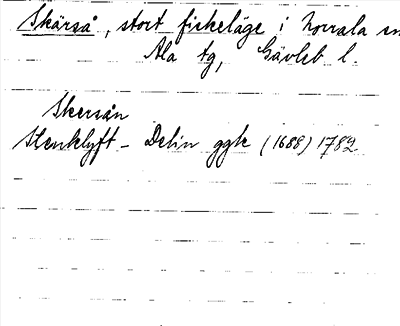 Skärså, stort fiskeläge i Norrala sn
Ala tg, Gävleb l.
Skersån
Stenklyft - Delin ggk (1688) 1782